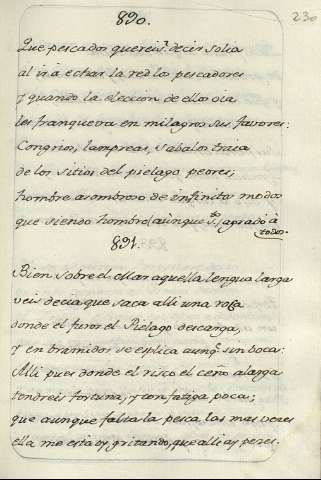 890.
230
Que pescados quereis? decir solia
al ir á echar la red los pescadores
y quando la eleccion de ellos oia
les franqueva en milagros sus favores:
Congrios, lampreas, sabalos traia
de los sitios del pielago peores;
hombre asombroso de infinitos modos
que siendo hombre (aunque Sto.) agradó à
todos.
891.
Bien sobre el Mar aquella lengua larga
veis decia que saca alli una roca
donde el furor el Pielago descarga,
y en bramidos se explica aunq. sin boca:
Alli pues donde el risco el ceño alarga
tendreis fortuna, y con fatiga poca;
que aunque falta la pesca las mas veces
ella me esta oy gritando, que alli ay peces.